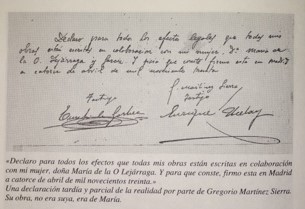 Declaro para todos los efectos legales que todas mis
obras están escritas en colaboracion con mi mujer, Dª Maria de
la O. Lejárraga y García. Y para que conste firmo esta en Madrid
a catorce de abril de mil novecientos treinta
G. Martínez Sierra
Testigo
Testigo
«Declaro para todos los efectos que todas mis obras están escritas en colaboración
con mi mujer, doña María de la O Lejárraga. Y para que conste, firmo esta en Madrid
a catorce de abril de mil novecientos treinta.»
Una declaración tardía y parcial de la realidad por parte de Gregorio Martínez Sierra.
Su obra, no era suya, era de María.